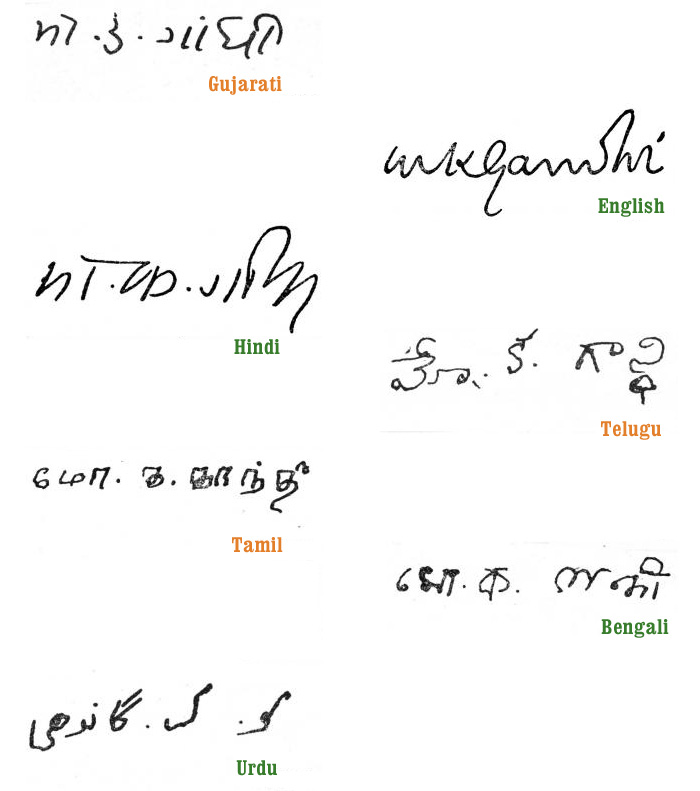 મો. ક. ગાંધી
Gujarati
mkgandhi
English
मो. क. गांधी
Hindi
మో. క. గాన్ధి
Telugu
மோ. க. காந்தி
Tamil
মো. ক. গান্ধী
Bengali
م. ک. گاندھی
Urdu